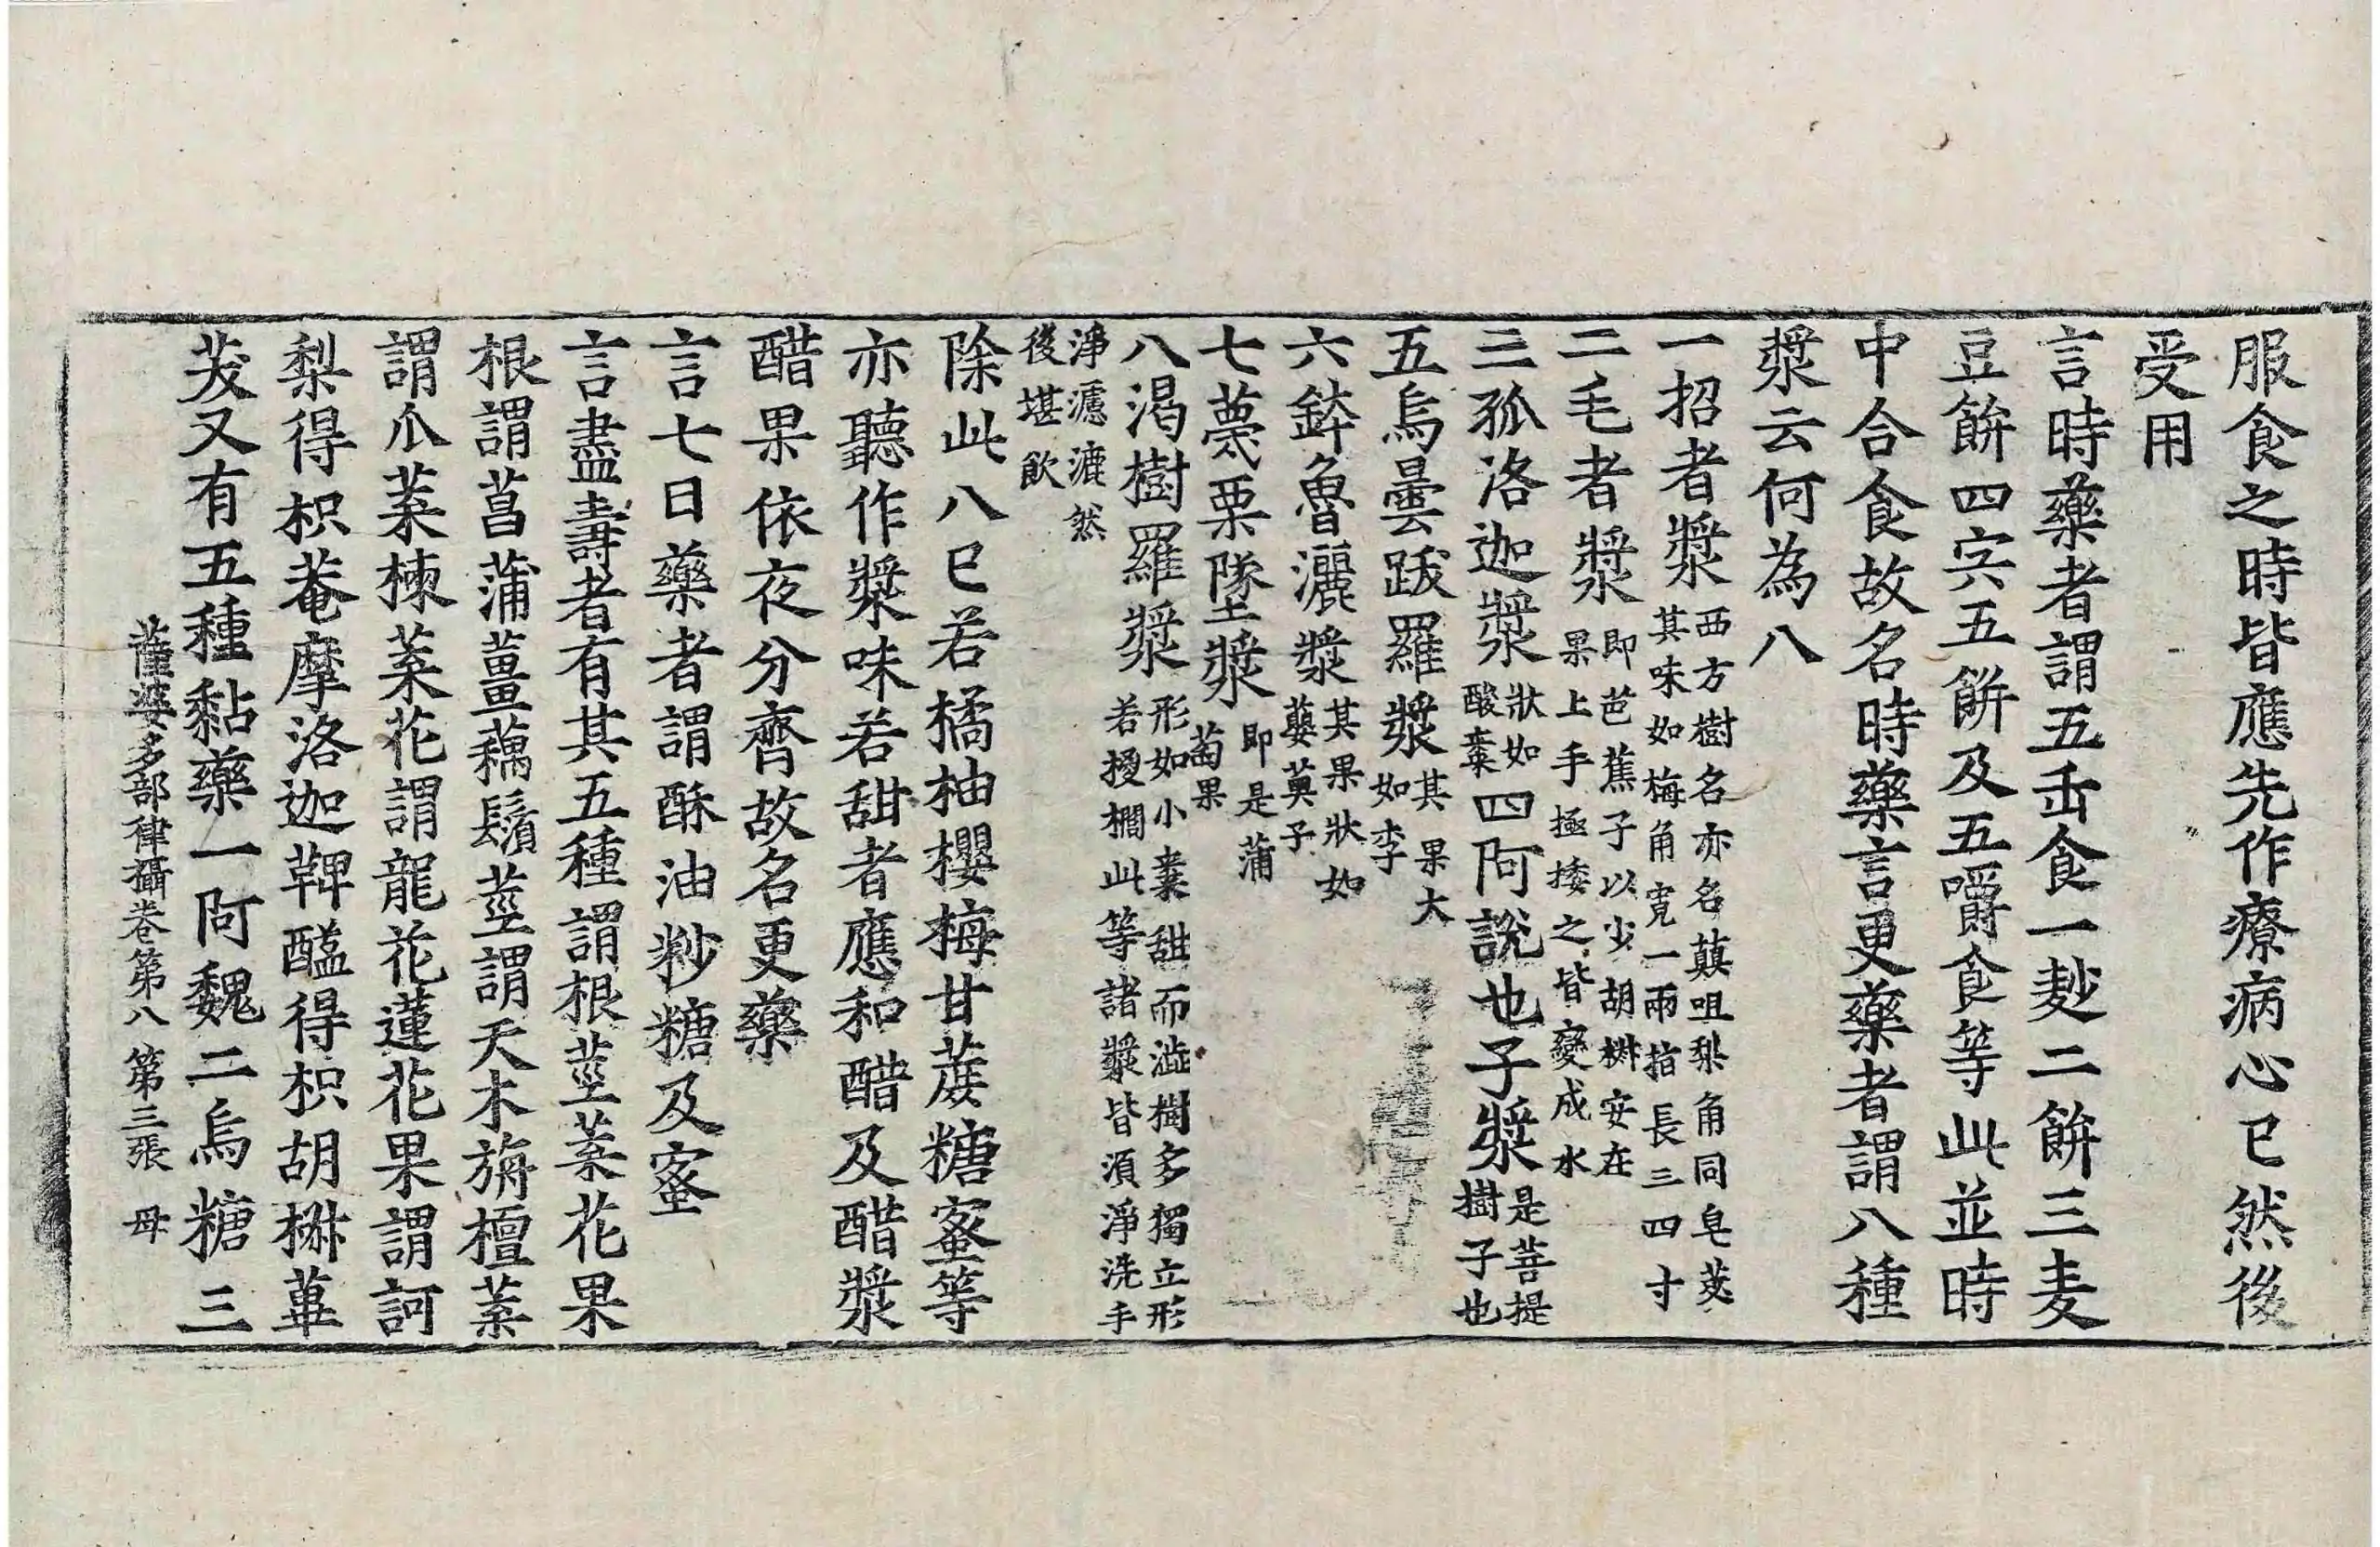 服食之時皆應先作療病心已然後
受用
言時藥者謂五㱠食一麨二餅三麦
豆餅四宍五餅及五嚼食等此並時
中合食故名時藥言更藥者謂八種
漿云何為八
一招者漿西方樹名亦名顛咀梨角同皂莢其味如梅角寬一兩指長三四寸
二毛者漿即芭蕉子以少胡椒安在果上手極捼之皆變成水
三孤洛迦漿狀如酸棗四阿說也子漿是菩提樹子也
五烏曇跋羅漿其果大如李
六鉢魯灑漿其果狀如蘡薁子
七蔑栗墜漿即是蒲萄果
八渴樹羅漿形如小棗甜而澁樹多獨立形若椶櫚此等諸漿皆須淨洗手
淨濾漉然後堪飲
除此八已若橘柚櫻梅甘蔗糖蜜等
亦聽作漿味若甜者應和醋及醋漿
醋果依夜分齊故名更藥
言七日藥者謂酥油粆糖及蜜
言盡壽者有其五種謂根莖葉花果
根謂菖蒲薑藕鬚莖謂天木旃檀葉
謂瓜葉楝葉花謂龍花蓮花果謂訶
梨得枳菴摩洛迦鞞醯得枳胡椒蓽
茇又有五種黏藥一阿魏二烏糖三
薩婆多部律攝卷第八 第三張 母